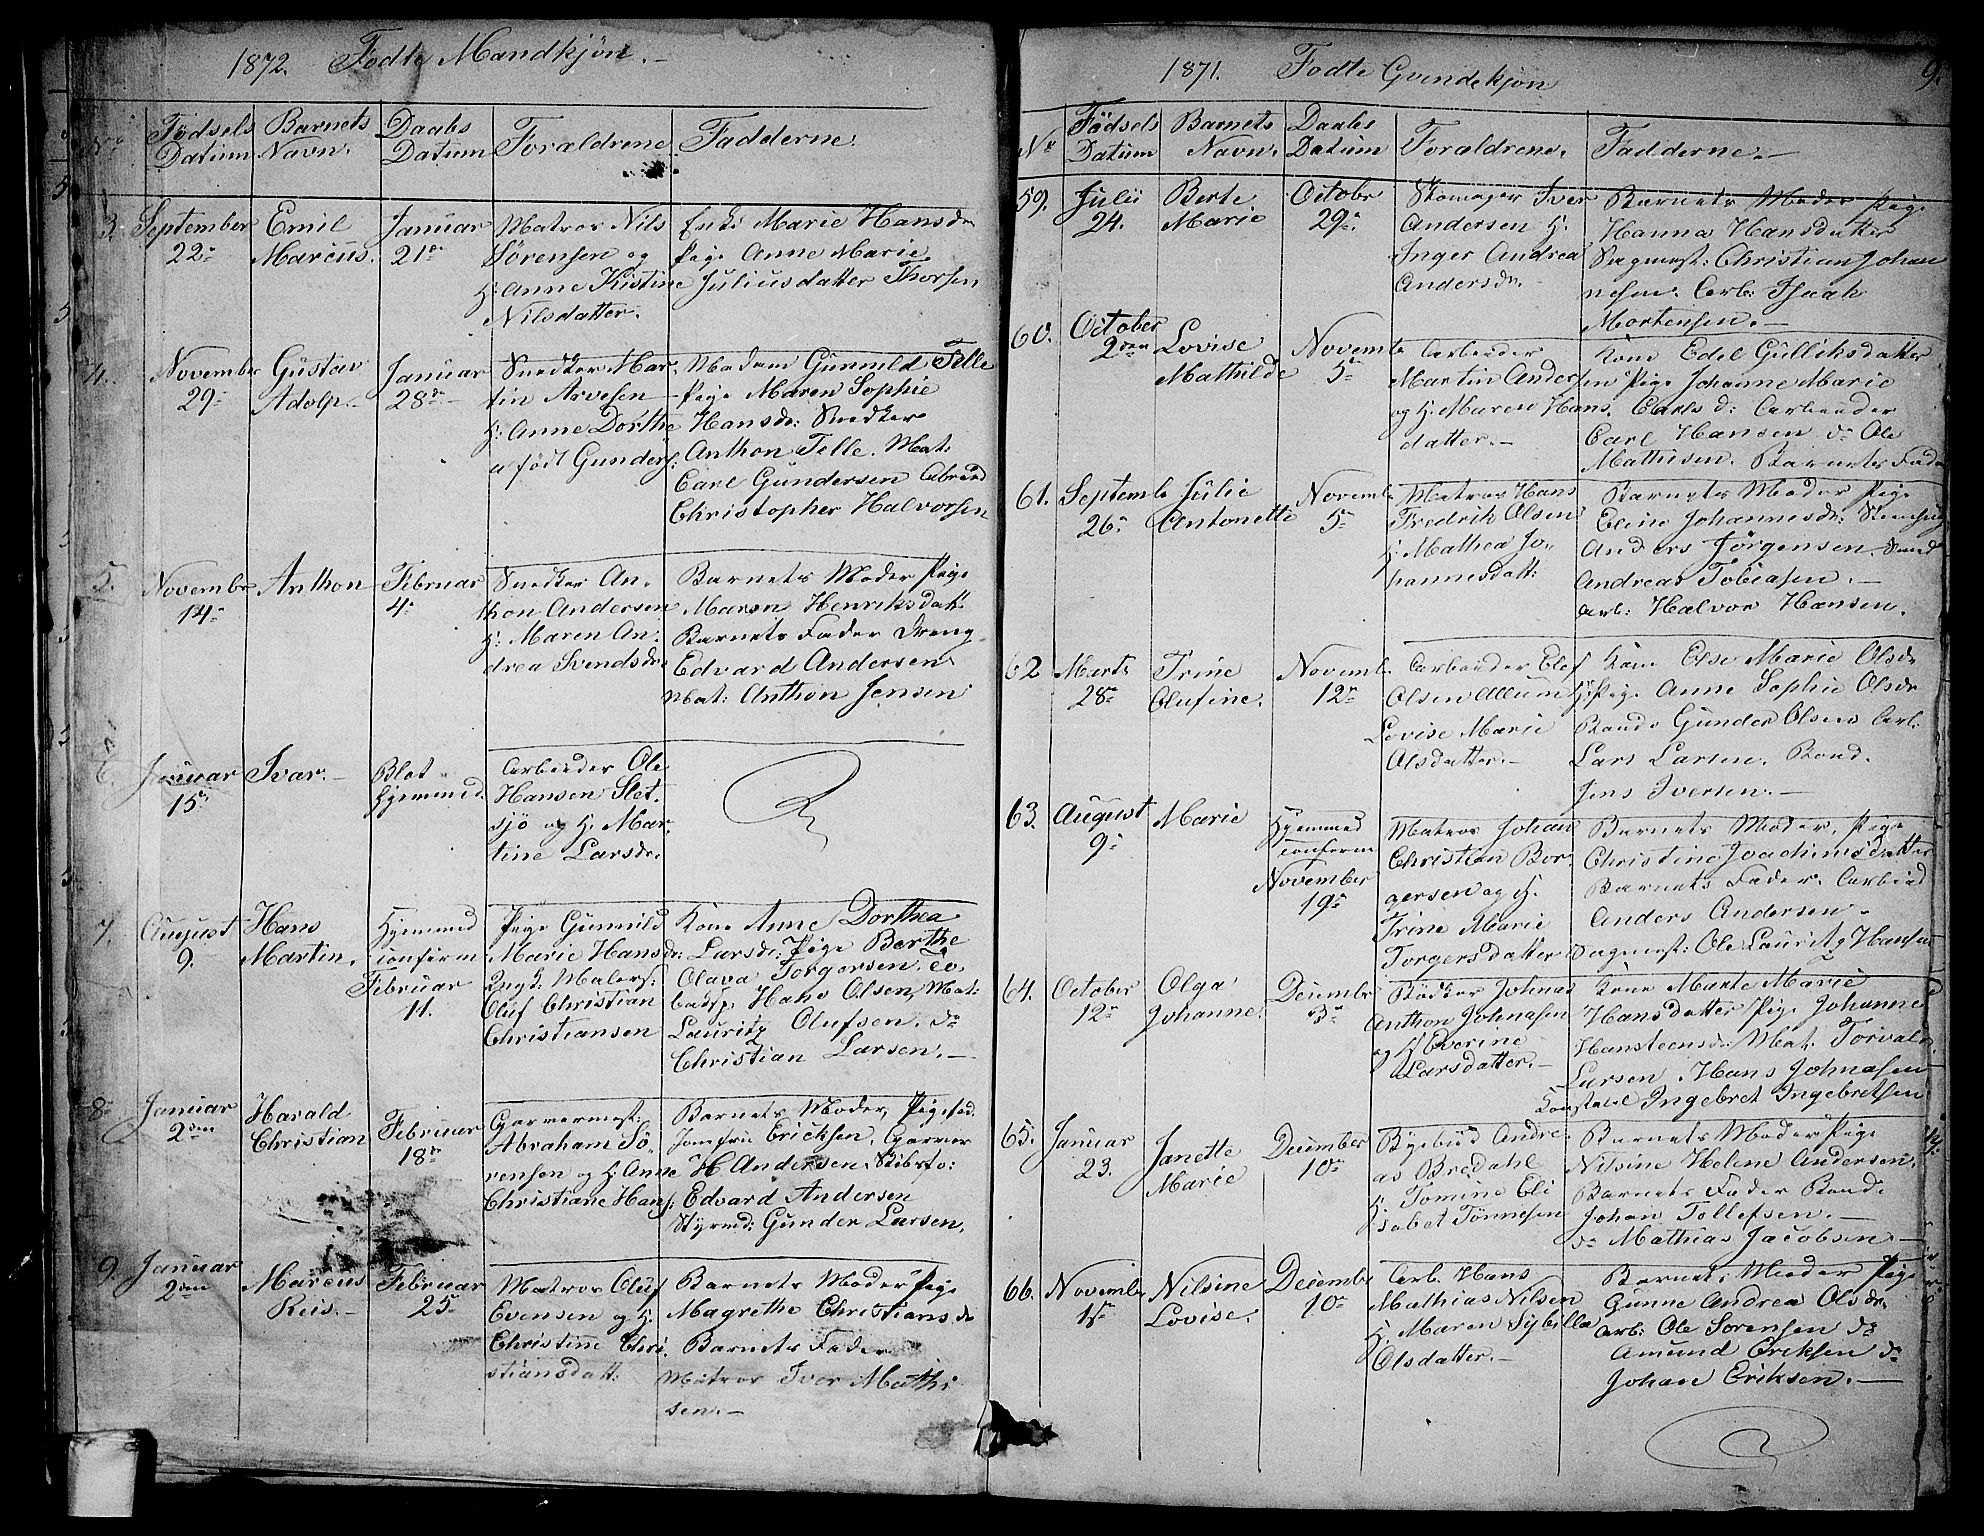 1872. Fødte Mandkjøn.
No Fødsels Datum Barnets Navn. Daabs Datum Forældrene Fadderne.
3. September 22de Emil Marcus. Januar 21de
Matros Nils
Sørensen og
H: Anne Kistine
Nilsdatter.
Enke Marie Hansdr
Pige Anne Marie
Juliusdatter Thorsen
4. November 29de Gustav Adolp. Januar 28de
Snedker Mar-
tin Arvesen
H: Anne Dorthe
a født Gunders:
Madam Gunnild Telle
Pige Maren Sophie
Hansdr: Snedker
Anthon Telle. Mat:
Carl Gundersen Arbeid
Christopher Halvorsen
5. Novembr 14de Anthon Februar 4de
Snedker An-
thon Andersen
H: Maren An-
drea Svendsdr
Barnets Moder Pige
Maren Henriksdatt:
Barnets Fader Dreng
Edvard Andersen
Mat: Anthon Jensen
6. Januar 15de Ivar. Blot Hjemmed.
Arbeider Ole
Hansen Slet-
sjö og H. Mar-
tine Larsdr.
7. August 9. Hans Martin. Hjemmed confirm Februar 11.
Pige Gunnild
Marie Hansdr:
Ungk: Malers:
Oluf Christian
Christiansen
Kone Anne Dorthea
Larsdr: Pige Berthe
Olava Torgersen.
Hans Olsen, Mat:
Lauritz Olufsen. do
Christian Larsen.
8. Januar 2den Harald Christian Februar 18de
Garvermest:
Abraham Sö-
rensen og H: Anne
Christiane Hans:
Barnets Moder, Pige
Jomfru Ericksen. Garver
H Andersen. Skibsfø:
Edvard Andersen
Styrmd: Gunder Larsen.
9. Januar 2den Marcus Reis. Februar 25de
Matros Oluf
Evensen og H.
Christine Chri-
stiansdatt:
Barnets Moder Pige
Magrethe Christiansdr
Barnets Fader
Matros Iver Mathi
sen.
1871. Fødte Qvindekjøn 9.
No Fødsels Datum Barnets Navn. Daabs Datum Forældrene. Fadderne.
59. Julii 24. Berte Marie Octobr 29de
Skomager Iver
Andersen H.
Inger Andrea
Andersdr.
Barnets Moder Pige
Hanna Hansdatter
Sagmest: Christian Johan
nesen. Arb: Isaak
Mortensen.
60. October 2den Lovise Mathilde Novembr 5de
Arbeider
Martin Anders
og H. Maren Hans
datter.
Kone Edel Gulliksdatter
en Pige Johanne Marie
Carlsdr: Arbeider
Carl Hansen do Ole
Mathisen. Barnets Fader
61. Septembr 26de Julie Antonette Novembr 5de
Matros Hans
Fredrik Olsen
H. Mathea Jo-
hannesdatt:
Barnets Moder Pige
Eline Johannesdr:
Anders Jørgensen
Andreas Tobiasen.
Arb: Halvor Hansen.
62 Marts 28de Trine Olufine. Novembr 12de
Arbeider Elef
Olsen Allum H.
Lovise Marie
Olsdatter.
Kone Else Marie Olsdr
Pige Anne Sophie Olsdr
Bonde Gunder Olsen Arb.
Lars Larsen. Bond.
Jens Iversen.
63. August 9de Marie Hjemmed confirm November 19de
Matros Johan
Christian Bor-
gersen og H.
Trine Marie
Torgersdatter
Barnets Moder, Pige
Christine Joachimsdatter
Barnets Fader. Arbeid
Anders Andersen
Sagmest: Ole Lauritz Hansen
64. October 12de Olga Johanne. Decembr 3de
Bødker Johnas
Anthon Johnasen
og H Everine
Larsdatter.
Kone Marte Marie
Hansdatter Pige Johanne
Hansteensdr: Mat: Torvald
Larsen. Hans Johnasen
Konstabel Ingebret Ingebretsen
65. Januar 23. Janette Marie December 10de
Byebud Andre-
as Bredahl
H Tomine Eli
sabet Tönnesen
Barnets Moder Pige
Nilsine Helene Andersen.
Barnets Fader Bond.
Johan Tollefsen.
do Mathias Jacobsen
66. Novembr 1ste Nilsine Lovise. Decembr 10de
Arb. Hans
Mathias Nilsen
H. Maren Sybilla
Olsdatter.
Barnets Moder Pige
Gunne Andrea Olsdr.
Arb: Ole Sörensen do
Amund Eriksen do
Johan Eriksen.